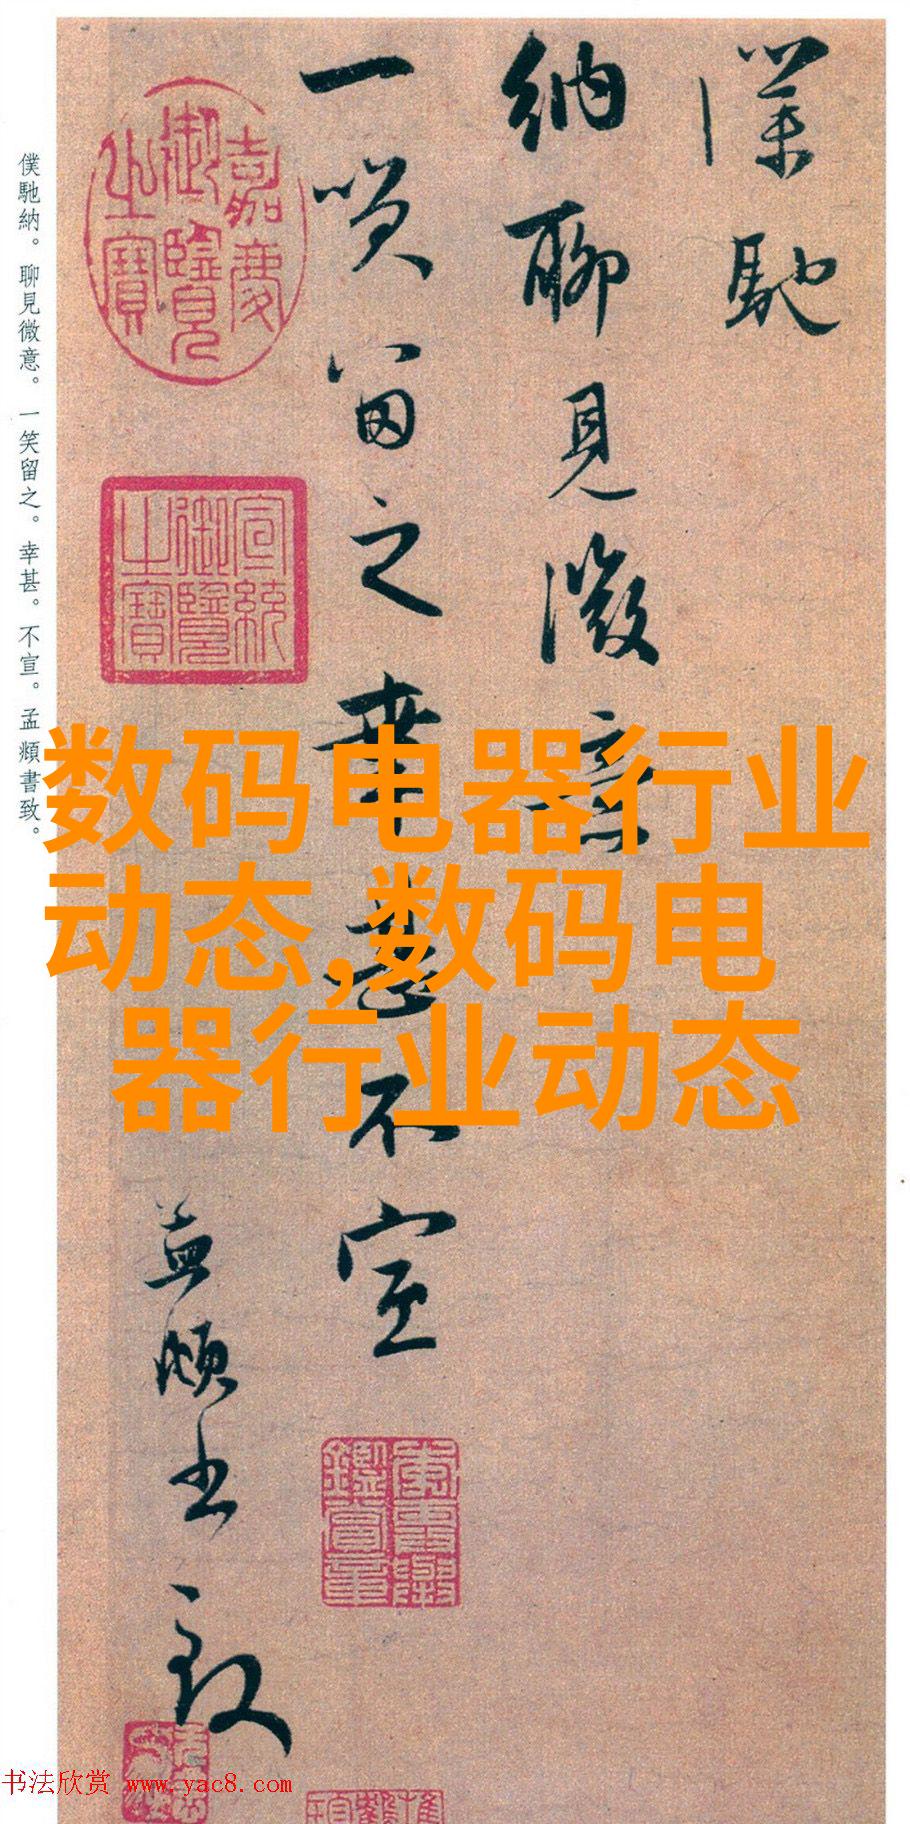 僕馳
納聊見微意
一笑留之幸甚不宣
孟頫書致
嘉慶御覽之寶
宣統御覽之寶
僕馳納。聊見微意。一笑留之。幸甚。不宣。孟頫書致。
数码电器行业
动态,数码电
器行业动态
书法欣赏 www.yac8.com